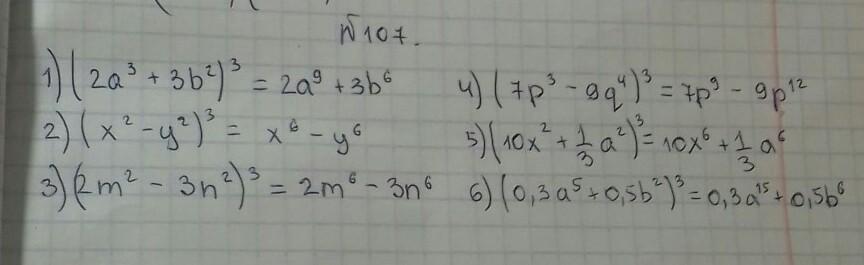 №107.
1) (2a³ + 3b²)³ = 2a⁹ + 3b⁶
2) (x² - y²)³ = x⁶ - y⁶
3) (2m² - 3n²)³ = 2m⁶ - 3n⁶
4) (7p³ - 9q⁴)³ = 7p⁹ - 9p¹²
5) (10x² + 1/3 a²)³ = 10x⁶ + 1/3 a⁶
6) (0,3a⁵ + 0,5b²)³ = 0,3a¹⁵ + 0,5b⁶